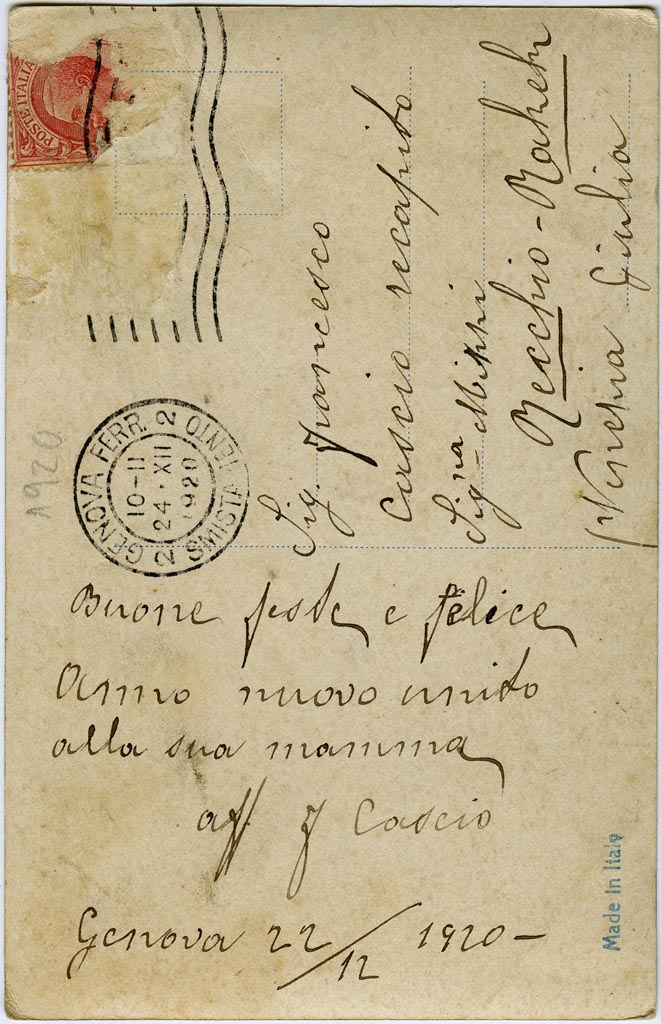 POSTE ITALIA
GENOVA FERR. 2
SMISTAMENTO 2
10-11
24·XII
1920
1920
Sig. Francesco
Cascio recapito
Sig.na
Recchio-
(Venezia Giulia
Buone feste e felice
Anno nuovo unito
alla sua mamma
aff. F Cascio
Genova 22/12 1920-
Made in Italy